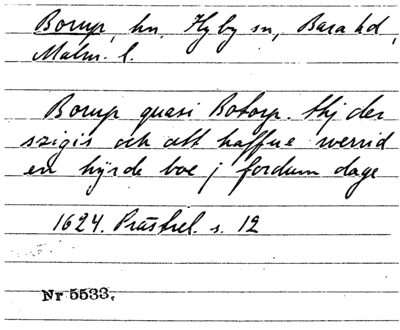 Borup, hn, Hyby sn, Bara hd,
Malm. l.
Borup quasi Botorp. thj der
szigis och att haffue werrid
en hyrde boe j fordum dage
1624. Prästrel. s. 12
Nr 5533.